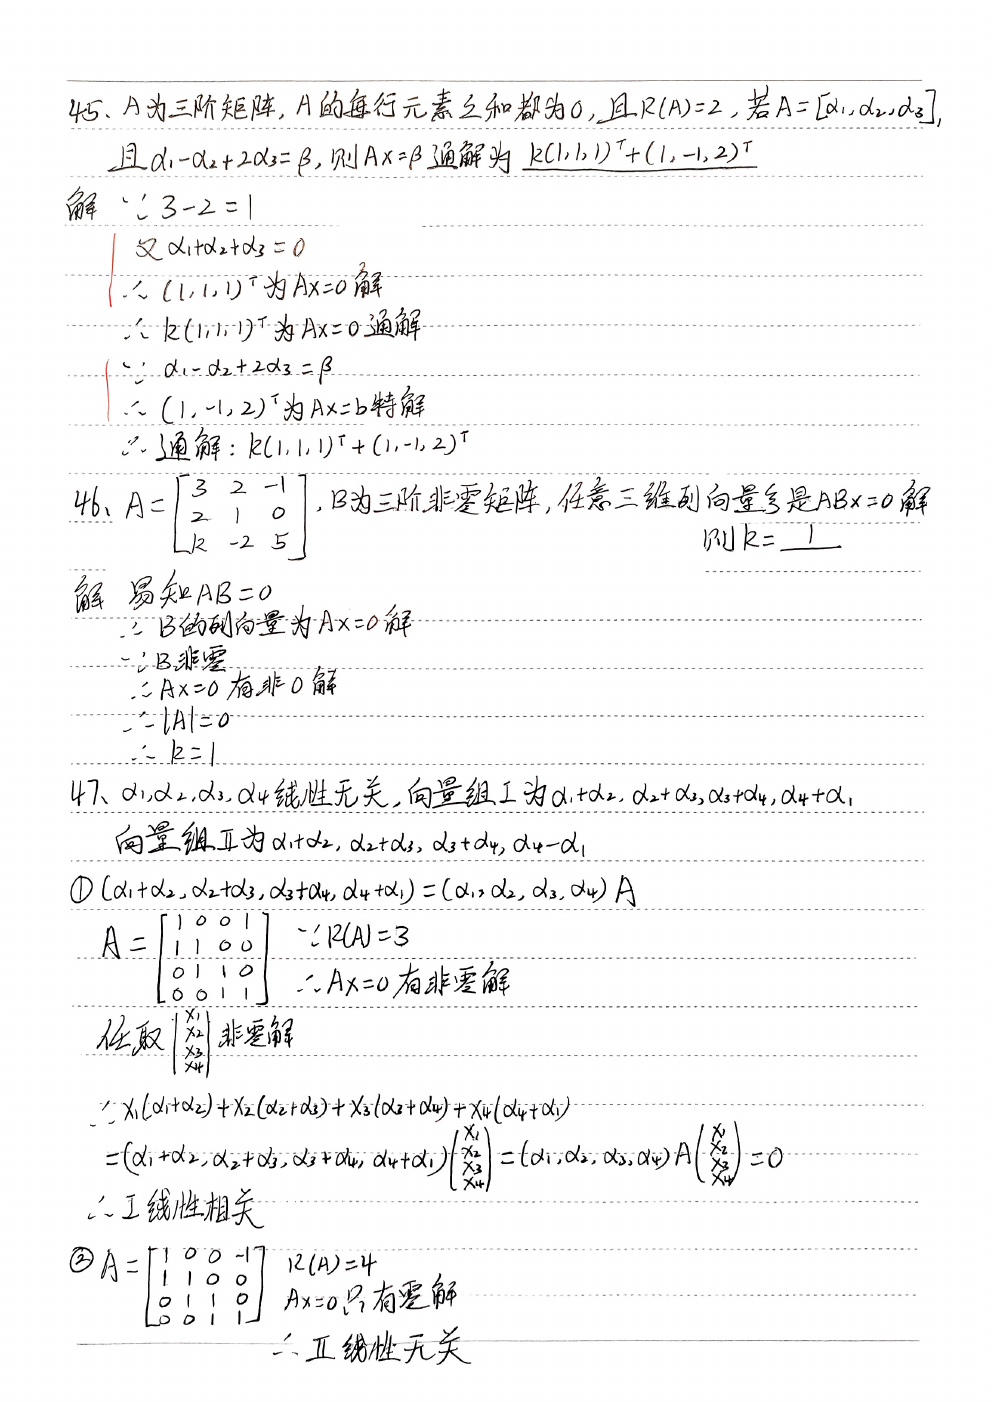 45、A为三阶矩阵, A的每行元素之和都为0, 且R(A)=2, 若A=[α₁,α₂,α₃],
且α₁-α₂+2α₃=β, 则Ax=β通解为 k(1,1,1)ᵀ+(1,-1,2)ᵀ
解 ∵ 3-2=1
又 α₁+α₂+α₃=0
∴ (1,1,1)ᵀ为Ax=0解
∴ k(1,1,1)ᵀ为Ax=0通解
∵ α₁-α₂+2α₃=β
∴ (1,-1,2)ᵀ为Ax=b特解
∴ 通解: k(1,1,1)ᵀ+(1,-1,2)ᵀ
46、A= [3 2 -1
2 1 0
k -2 5] , B为三阶非零矩阵, 任意三维列向量ξ是ABx=0解
则k= 1
解 易知AB=0
∴ B的列向量为Ax=0解
∵ B非零
∴ Ax=0有非0解
∴ |A|=0
∴ k=1
47、α₁,α₂,α₃,α₄线性无关, 向量组Ⅰ为α₁+α₂, α₂+α₃, α₃+α₄, α₄+α₁
向量组Ⅱ为α₁+α₂, α₂+α₃, α₃+α₄, α₄-α₁
① (α₁+α₂, α₂+α₃, α₃+α₄, α₄+α₁)=(α₁, α₂, α₃, α₄)A
A= [1 0 0 1
1 1 0 0
0 1 1 0
0 0 1 1]
∵ R(A)=3
∴ Ax=0有非零解
任取 [x₁
x₂
x₃
x₄] 非零解
∵ x₁(α₁+α₂)+x₂(α₂+α₃)+x₃(α₃+α₄)+x₄(α₄+α₁)
=(α₁+α₂, α₂+α₃, α₃+α₄, α₄+α₁)(x₁ x₂ x₃ x₄)=(α₁,α₂,α₃,α₄)A(x₁ x₂ x₃ x₄)=0
∴ Ⅰ线性相关
② A= [1 0 0 -1
1 1 0 0
0 1 1 0
0 0 1 1]
R(A)=4
Ax=0只有零解
∴ Ⅱ线性无关